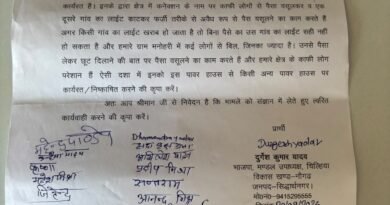 कार्यरत हैं। इनके द्वारा क्षेत्र में कनेक्शन के नाम पर काफी लोगों से पैसा वसूलकर व एक
दूसरे गांव का लाईट काटकर फर्जी तरीके से अवैध रूप से पैसे वसूलने का काम करते हैं
अगर किसी गांव का लाईट खराब हो जाता है तो बिना पैसे का उस गांव का लाईट सही नहीं
हो सकता है और हमारे ग्राम मनोहरी में कई लोगों से बिल, जिनका ज्यादा है। उनसे पैसा
लेकर छूट दिलाने की बात पर पैसा वसूलने का काम करते हैं और हमारे क्षेत्र के काफी लोग
परेशान हैं ऐसी दशा में इनको इस पावर हाउस से किसी अन्य पावर हाउस पर
कार्यरत/निष्काषित करने की कृपा करें।
अतः आप श्रीमान जी से निवेदन है कि मामले को संज्ञान में लेते हुए त्वरित
कार्यवाही करने की कृपा करें।
प्रार्थी
Dharmendra yadav
Durgesh yadav
दुर्गेश कुमार यादव
भाजपा, मण्डल उपाध्यक्ष, चिल्हिया
विकास खण्ड-नौगढ़
जनपद-सिद्धार्थनगर।
मो०न०-9415295555
प्रदीप मिश्रा
सन्तराम
आनन्द मिश्रा
जितेन्द्र